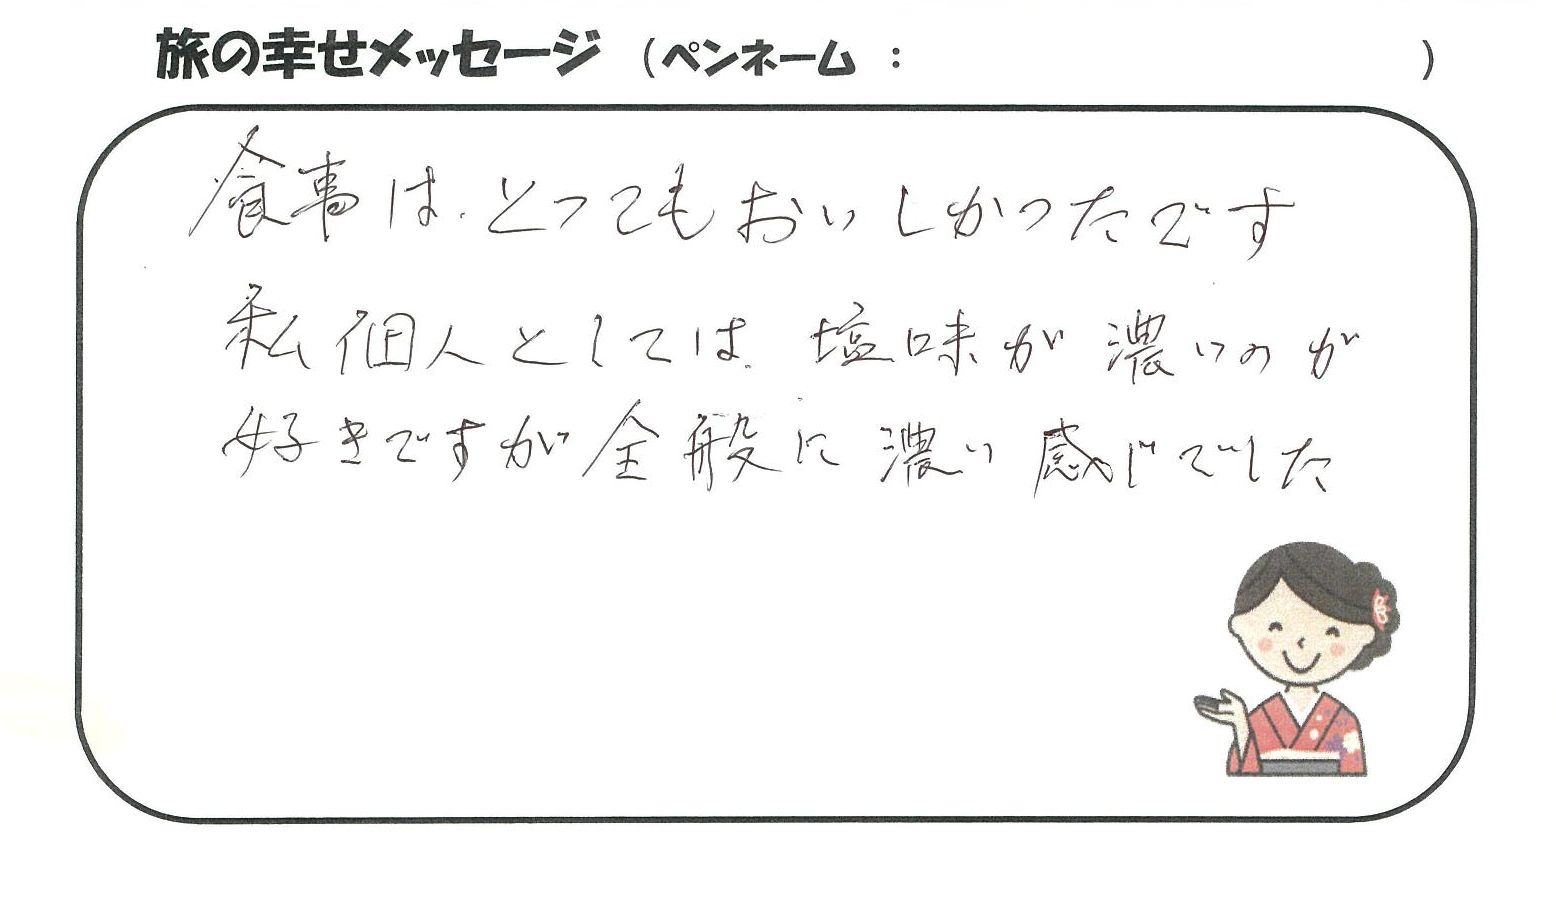 旅の幸せメッセージ (ペンネーム : )
食事は、とってもおいしかったです
私個人としては、塩味が濃いのが
好きですが全般に濃い感じでした